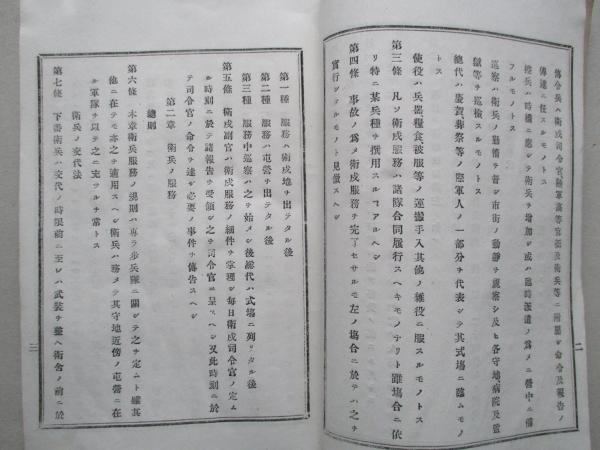 傳令兵ハ衛戍司令官陸軍高等官衙及衛兵等ニ附屬シ命令及報告ノ
傳達ニ任スルモノトス
控兵ハ時機ニ應シテ衛兵ヲ增加シ或ハ臨時派遣ノ爲メニ營中ニ備
フルモノトス
巡察ハ衛兵ノ勤惰ヲ督シ市街ノ動靜ヲ視察シ及ヒ各守地病院及監
獄等ヲ巡檢スルモノトス
總代ハ慶賀葬祭等ノ際軍人ノ一部分ヲ代表シテ其式場ニ臨ムモノ
トス
使役ハ兵器糧食被服等ノ運搬手入其他ノ雜役ニ服スルモノトス
第三條 凡ソ衛戍服務ハ諸隊合同履行スヘキモノナリト雖場合ニ依
リ特ニ某兵種ヲ撰用スルヿアルヘシ
第四條 事故ノ爲メ衛戍服務ヲ完了セサルモ左ノ場合ニ於テハ之ヲ
實行シタルモノト見做スヘシ
二
第一種 服務ハ衛戍地ヲ出テタル後
第二種 服務ハ屯營ヲ出テタル後
第三種 服務中巡察ハ之ヲ始メシ後總代ハ式場ニ列シタル後
第五條 衛戍副官ハ衛戍服務ノ細件ヲ掌理シ毎日衛戍司令官ノ定ム
ル時刻ニ於テ諸報告ヲ受領シ之ヲ司令官ニ呈スヘシ又此時刻ニ於
テ司令官ノ命令ヲ達シ必要ノ事件ヲ傳告スヘシ
第二章 衛兵ノ服務
總則
第六條 本章衛兵服務ノ規則ハ專ラ步兵隊ニ關シテ之ヲ定ムト雖其
他ニ在テモ亦之ヲ適用スヘシ衛兵ハ務メテ其守地近傍ノ屯營ニ在
ル軍隊ヲ以テ之ニ充ツルヲ常トス
衛兵ノ交代法
第七條 下番衛兵ハ交代ノ時限前ニ至レハ武裝ヲ整ヘ衛舍ノ前ニ於
三